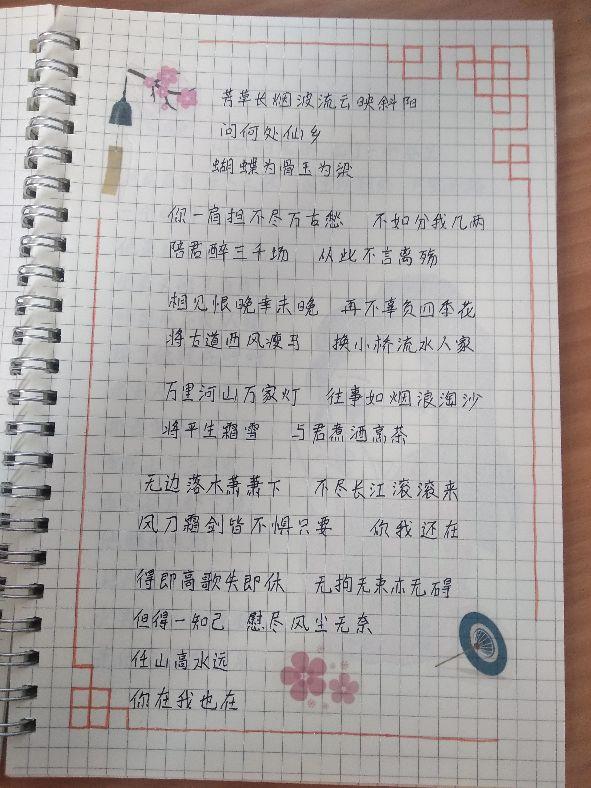 芳草长烟波流云映斜阳
问何处仙乡
蝴蝶为骨玉为梁
你一肩担不尽万古愁 不如分我几两
陪君醉三千场 从此不言离殇
相见恨晚幸未晚 再不辜负四季花
将古道西风瘦马 换小桥流水人家
万里河山万家灯 往事如烟浪淘沙
将平生霜雪 与君煮酒烹茶
无边落木萧萧下 不尽长江滚滚来
风刀霜剑皆不惧只要 你我还在
得即高歌失即休 无拘无束亦无碍
但得一知己 慰尽风尘无奈
任山高水远
你在我也在